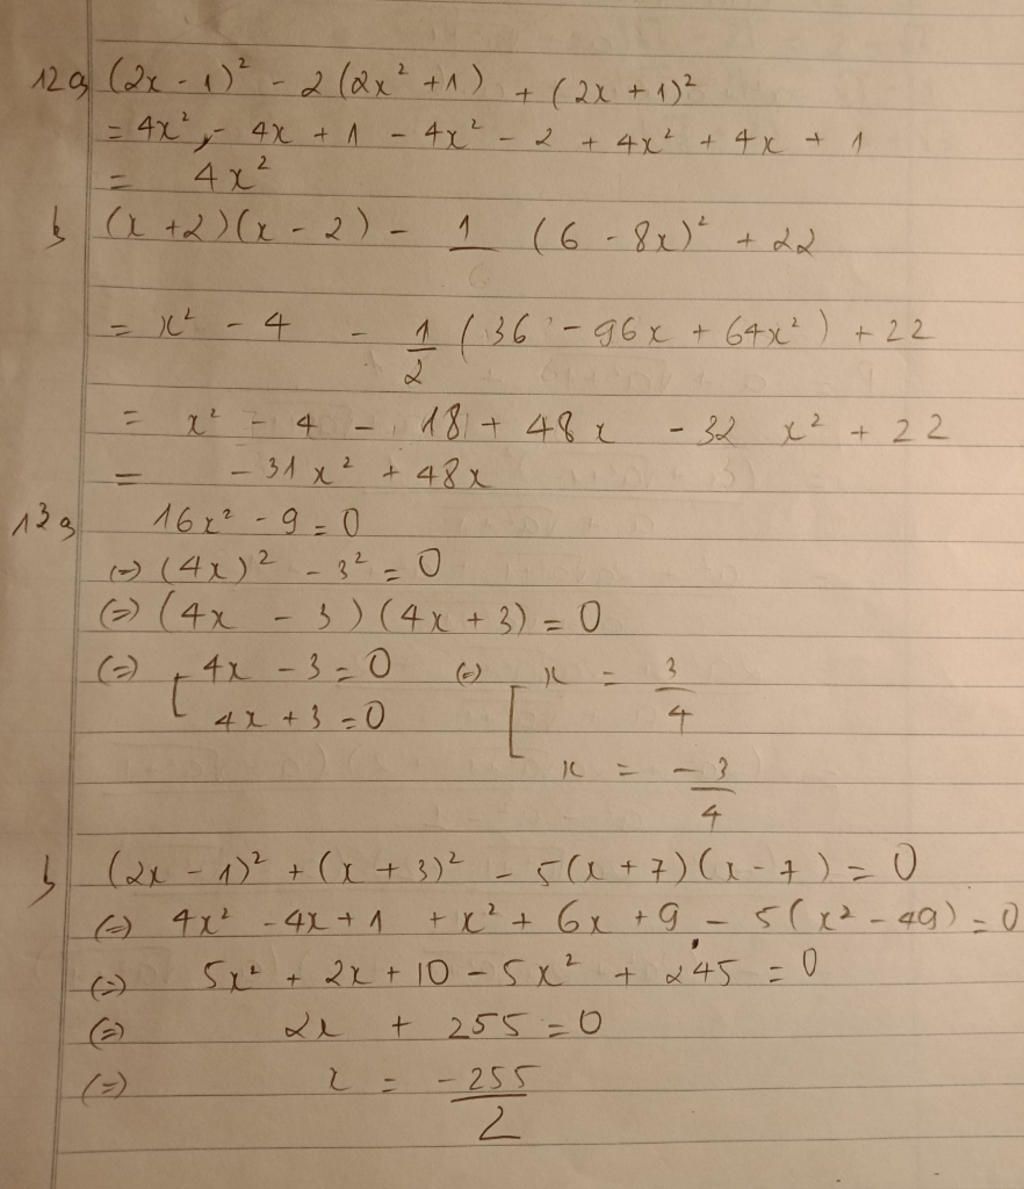 12a) (2x - 1)² - 2(2x² + 1) + (2x + 1)²
= 4x² - 4x + 1 - 4x² - 2 + 4x² + 4x + 1
= 4x²
b (x + 2)(x - 2) - 1 (6 - 8x)² + 22
= x² - 4 - 1/2 (36 - 96x + 64x²) + 22
= x² - 4 - 18 + 48x - 32 x² + 22
= -31x² + 48x
13a 16x² - 9 = 0
(=) (4x)² - 3² = 0
(=) (4x - 3)(4x + 3) = 0
(=) [ 4x - 3 = 0 (=) [ x = 3/4
4x + 3 = 0
x = -3/4
b (2x - 1)² + (x + 3)² - 5(x + 7)(x - 7) = 0
(=) 4x² - 4x + 1 + x² + 6x + 9 - 5(x² - 49) = 0
(=) 5x² + 2x + 10 - 5x² + 245 = 0
(=) 2x + 255 = 0
(=) x = -255/2